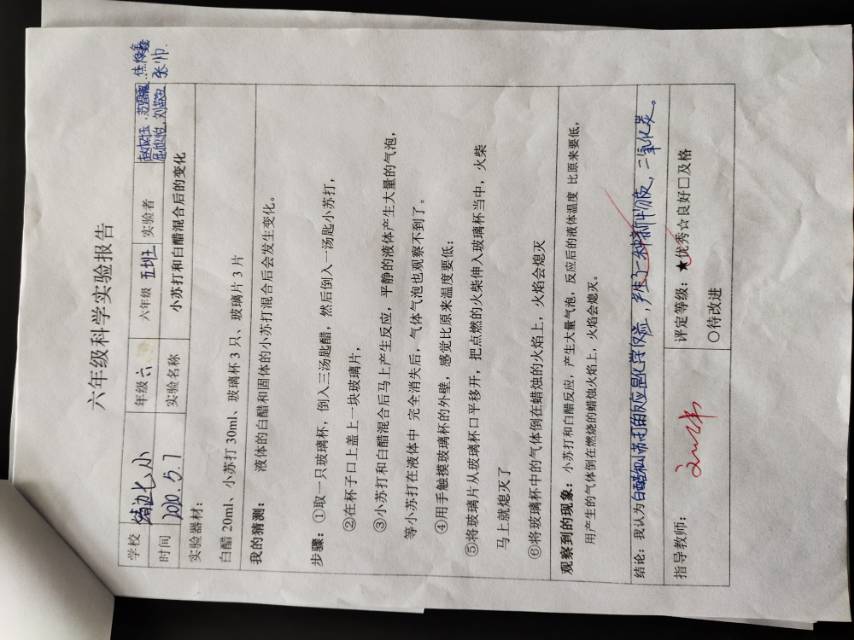 六年级科学实验报告
学校 靖边七小 年级 六 六年级 五班 实验者
时间 2020.5.7 实验名称 小苏打和白醋混合后的变化 张帅
实验器材：
白醋 20ml、小苏打 30ml、玻璃杯 3 只、玻璃片 3 片
我的猜测： 液体的白醋和固体的小苏打混合后会发生变化。
步骤：①取一只玻璃杯，倒入三汤匙醋，然后倒入一汤匙小苏打，
②在杯子口上盖上一块玻璃片，
③小苏打和白醋混合后马上产生反应，平静的液体产生大量的气泡，
等小苏打在液体中 完全消失后，气体气泡也观察不到了。
④用手触摸玻璃杯的外壁，感觉比原来温度要低；
⑤将玻璃片从玻璃杯口平移开，把点燃的火柴伸入玻璃杯当中，火柴
马上就熄灭了
⑥将玻璃杯中的气体倒在蜡烛的火焰上，火焰会熄灭
观察到的现象：小苏打和白醋反应，产生大量气泡，反应后的液体温度 比原来要低，
用产生的气体倒在燃烧的蜡烛火焰上，火焰会熄灭。
结论：我认为白醋和小苏打的反应是化学反应，产生了一种新物质，二氧化炭。
指导教师： 评定等级：★优秀☆良好□及格
○待改进